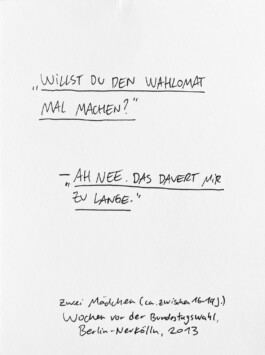 „WILLST DU DEN WAHLOMAT
MAL MACHEN?"
– „AH NEE. DAS DAUERT MIR
ZU LANGE."
zwei Mädchen (ca. zwischen 16-19 J.)
Wochen vor der Bundestagswahl,
Berlin-Neukölln, 2013